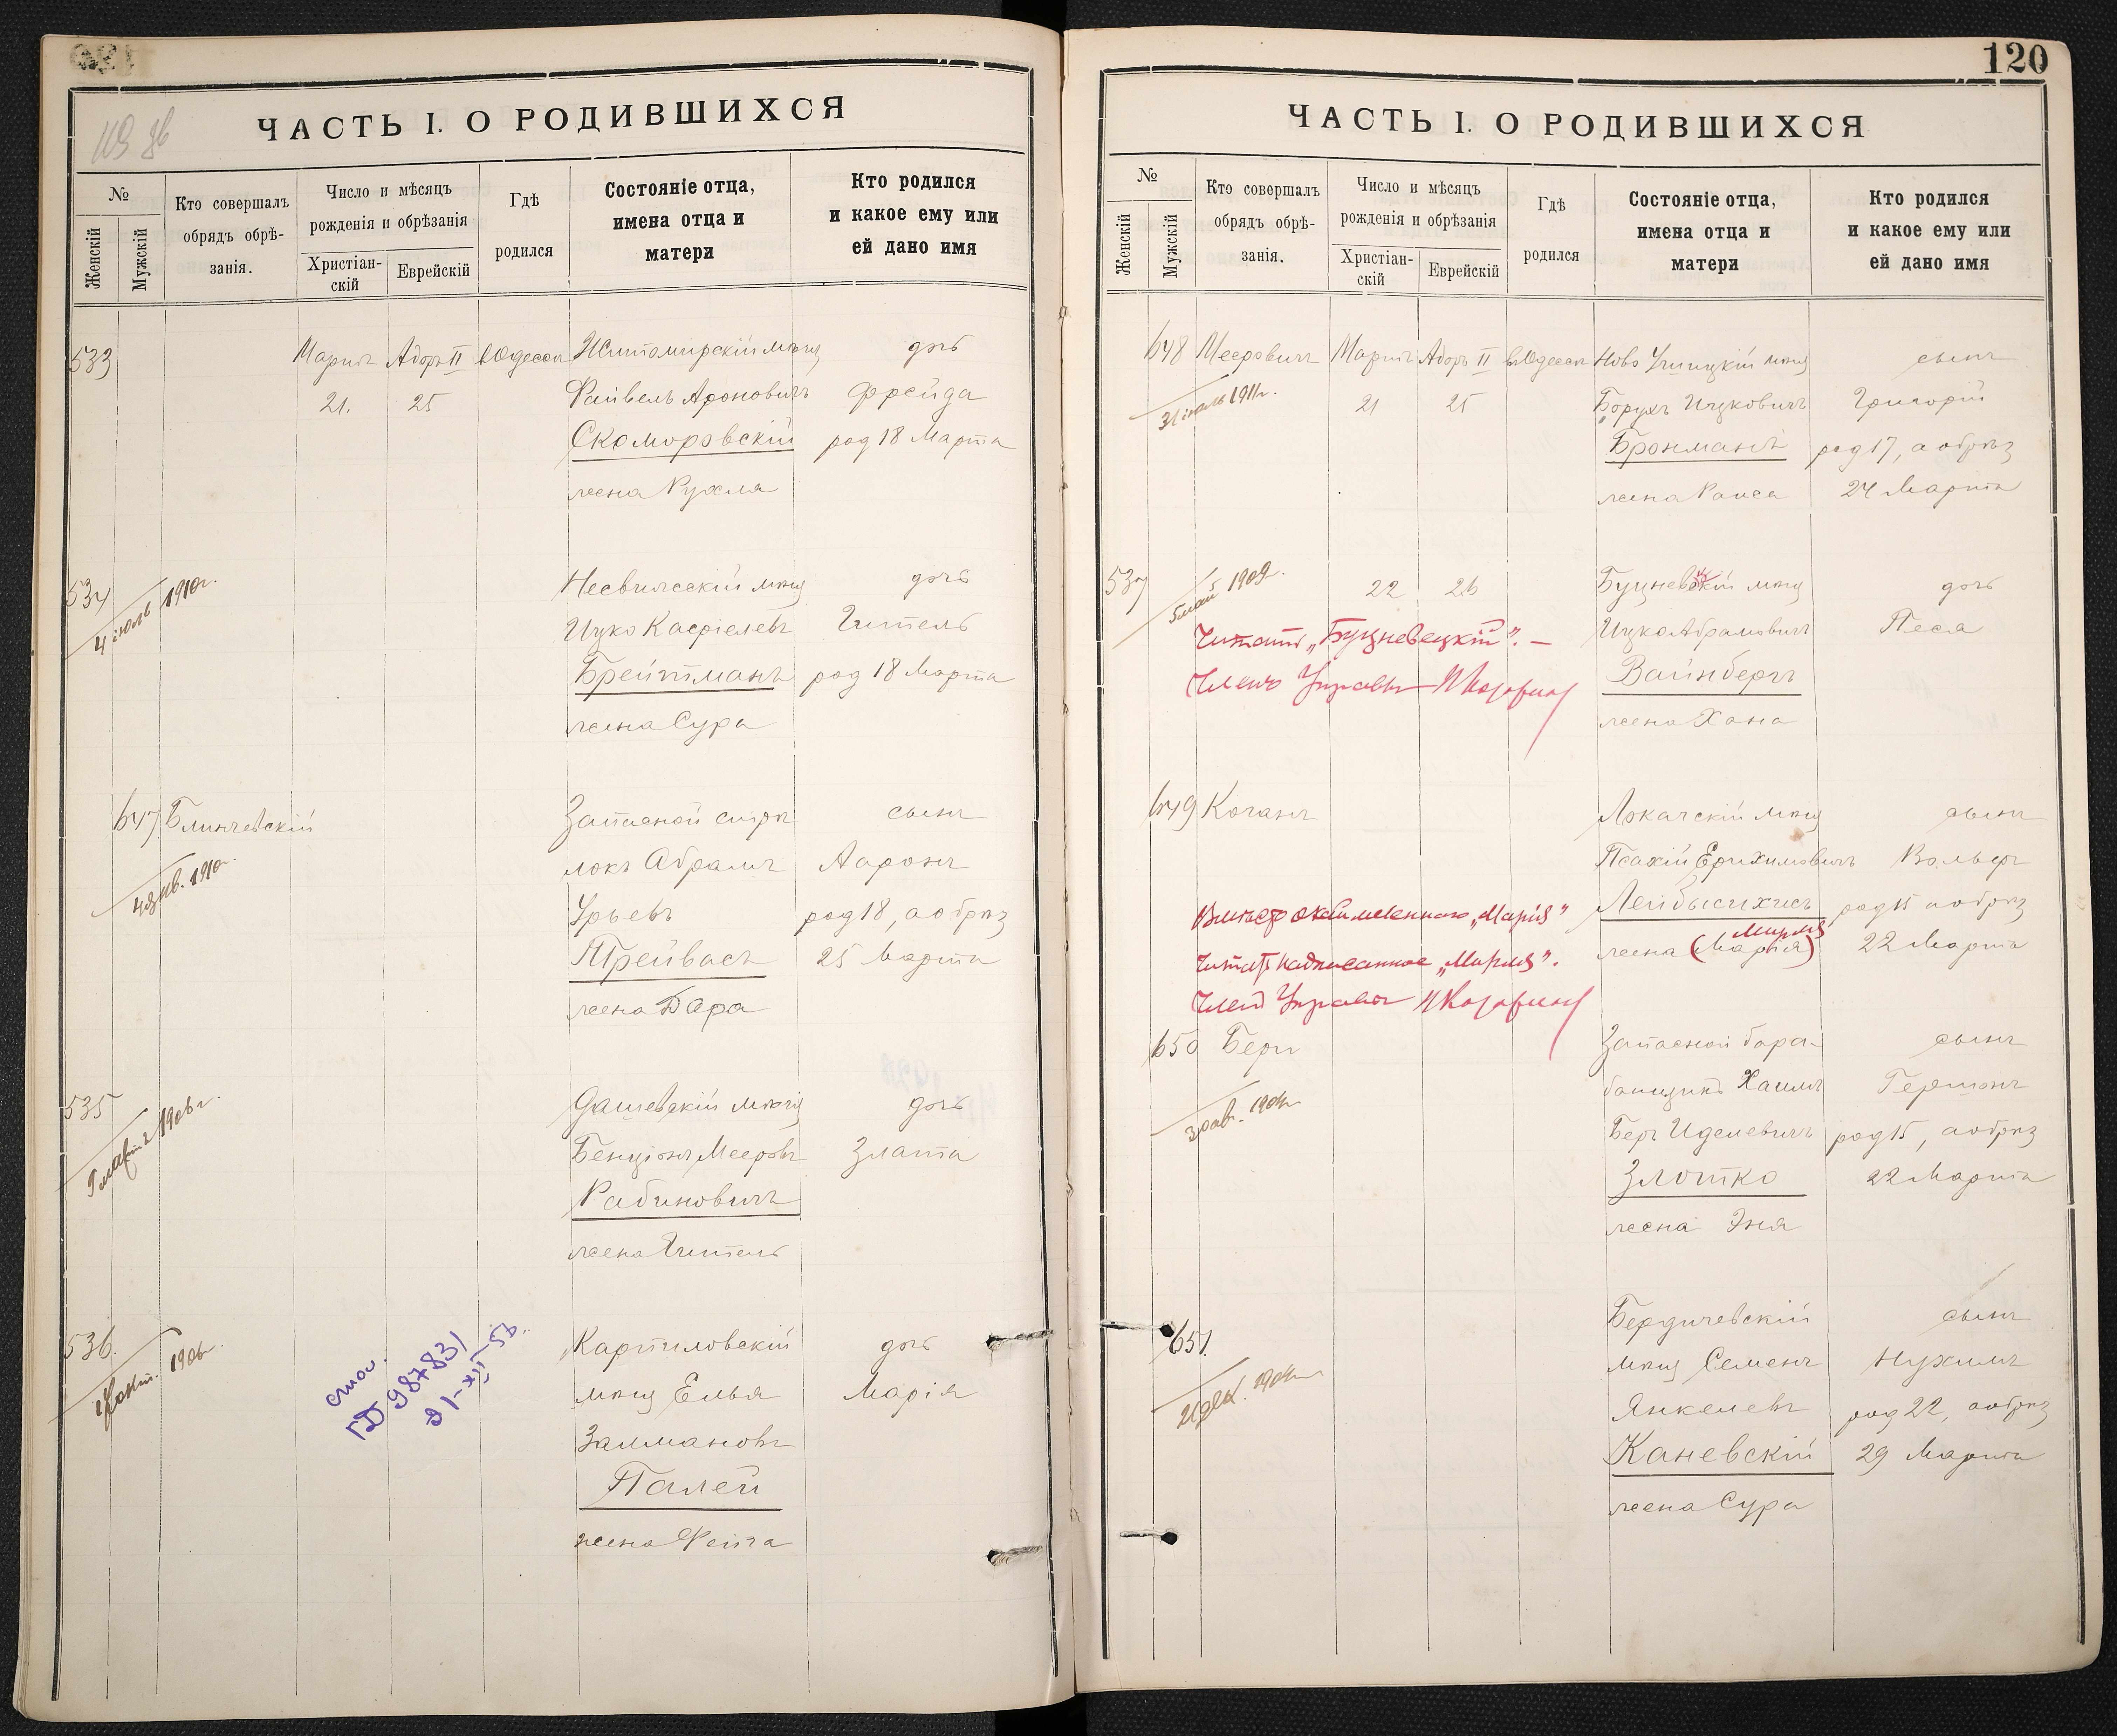 119 об
ЧАСТЬ I. О РОДИВШИХСЯ
№
Женскій
Мужскій
Кто совершалъ
обрядъ обрѣ-
занія.
Число и мѣсяцъ
рожденія и обрѣзанія
Христіан-
скій
Еврейскій
Гдѣ
родился
Состояніе отца,
имена отца и
матери
Кто родился
и какое ему или
ей дано имя
533 Мартъ Адоръ II в Одессѣ Житомирскій мѣщ дочь
21. 25 Файвель Ароновичъ Фрейда
Скоморовскій род 18 Марта
жена Рухля
534 Несвижскій мѣщ дочь
4 іюль 1910г. Ицко Касріелевъ Гитель
Брейтманъ род 18 Марта
жена Сура
647 Блинчевскій Запасной стрѣ сынъ
4 янв. 1910г. локъ Абрамъ Ааронъ
Урьевъ род 18, а обрѣз
Трейвасъ 25 Марта
жена Двора
535 Дашевскій мѣщ дочь
9 мартъ 1906г. Бенціонъ Мееровъ Злата
Рабиновичъ
жена Гитель
536. Картиловскій дочь
окт. 1906г. мѣщ Елья Марія
987831 Залмановъ
21-XII-56. Палей
жена Фейга
120
ЧАСТЬ I. О РОДИВШИХСЯ
№
Женскій
Мужскій
Кто совершалъ
обрядъ обрѣ-
занія.
Число и мѣсяцъ
рожденія и обрѣзанія
Христіан-
скій
Еврейскій
Гдѣ
родился
Состояніе отца,
имена отца и
матери
Кто родился
и какое ему или
ей дано имя
648 Мееровичъ Мартъ Адоръ II в Одессѣ Ново Ушицкій мѣщ сынъ
31 іюль 1911г. 21 25 Борухъ Ицковичъ Григорій
Бронманъ род 17, а обрѣз
жена Раиса 24 Марта
537 22 26 Буцневскій мѣщ дочь
5 май 1909г. Ицко Абрамовичъ Песя
Читать „Буцневецкій“. —
Вайнбергъ
Членъ Управы
жена Хана
649 Коганъ Локачскій мѣщ сынъ
Псахій Ерихимовичъ Вольфъ
Вмѣсто „Марія“ Лейбысихисъ род 15 а обрѣз
Мирля
читать надписанное „Мирля“. жена (Марія) 22 Марта
Членъ Управы
650 Бергъ Запасной бара- сынъ
1909г. банщикъ Хаимъ Гершонъ
Беръ Иделевичъ род 15, а обрѣз
Злотко 22 Марта
жена Эня
651. Бердичевскій сынъ
мѣщ Семенъ Нухимъ
Янкелевъ род 22, а обрѣз
Каневскій 29 Марта
жена Сура